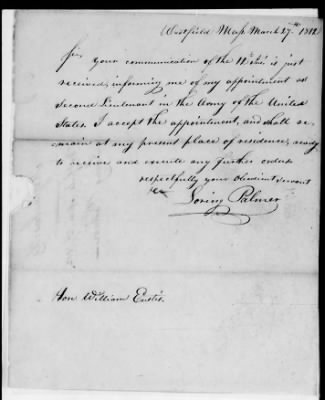 Westfield Mass March 27th 1812
Sir, your communication of the 12th Ins. is just
received, informing me of my appointment as
Second Lieutenant in the Army of the United
States. I accept the appointment, and shall re-
main at my present place of residence, ready
to receive and execute any further orders
respectfully your obedient servant
Loring Palmer
Hon William Eustis.